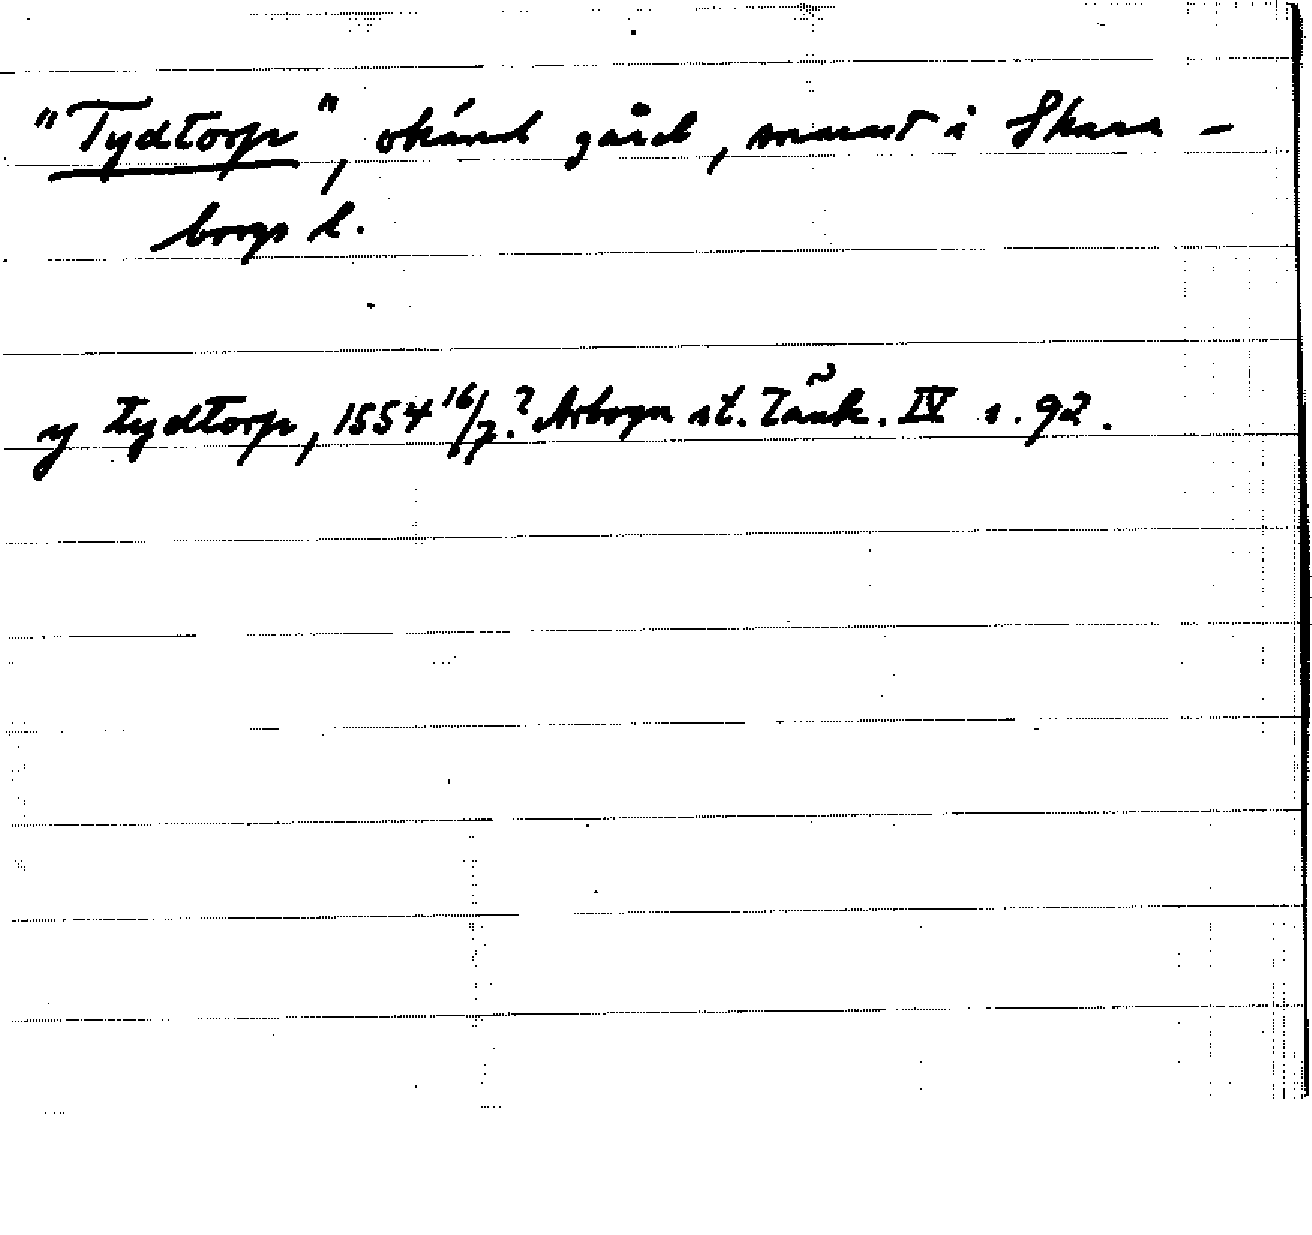 "Tydtorp", okänd gård, snarast i Skara-
borgs l.
y tydtorp, 1554 16/7? Arboga st. Tänk. IV s. 92.